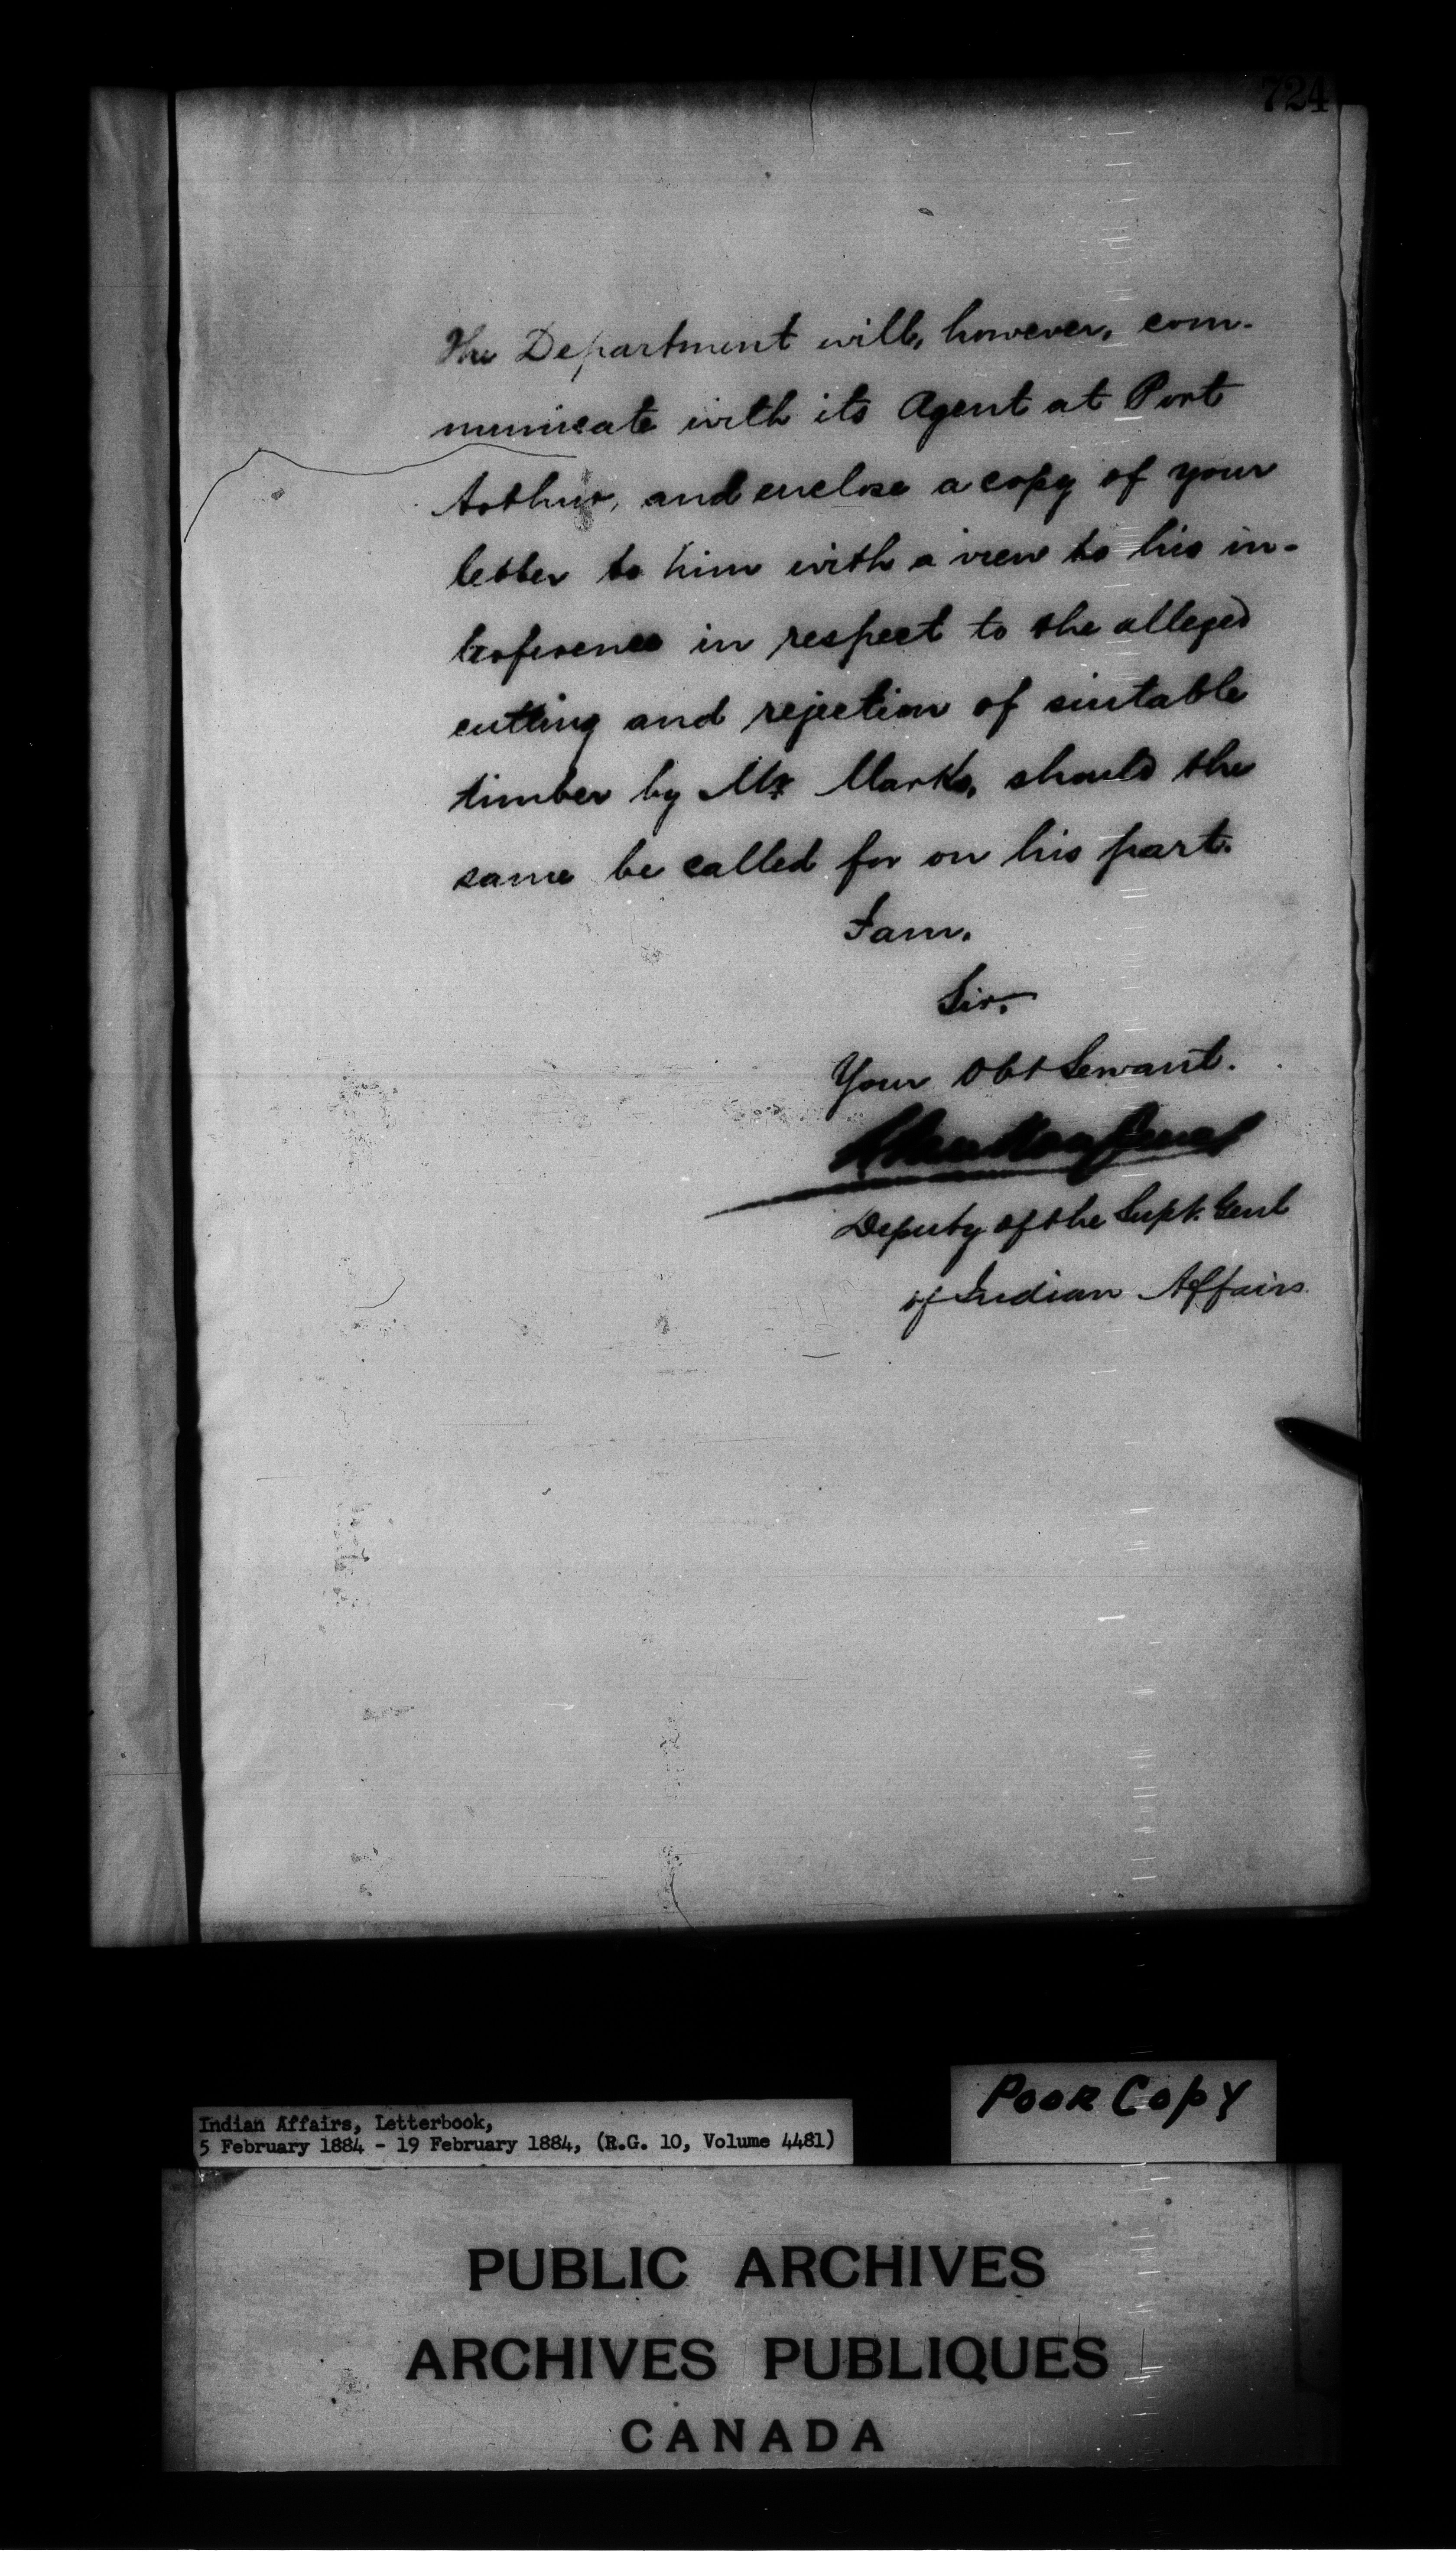 724
The Department will, however, com-
municate with its Agent at Port
Arthur, and enclose a copy of your
letter to him with a view to his in-
terference in respect to the alleged
cutting and rejection of suitable
timber by Mr Marks, should the
same be called for on his part.
I am,
Sir,
Your Obt Servant.
Deputy of the Supt. Genl
of Indian Affairs.
Indian Affairs, Letterbook,
5 February 1884 - 19 February 1884, (R.G. 10, Volume 4481)
Poor Copy
PUBLIC ARCHIVES
ARCHIVES PUBLIQUES
CANADA